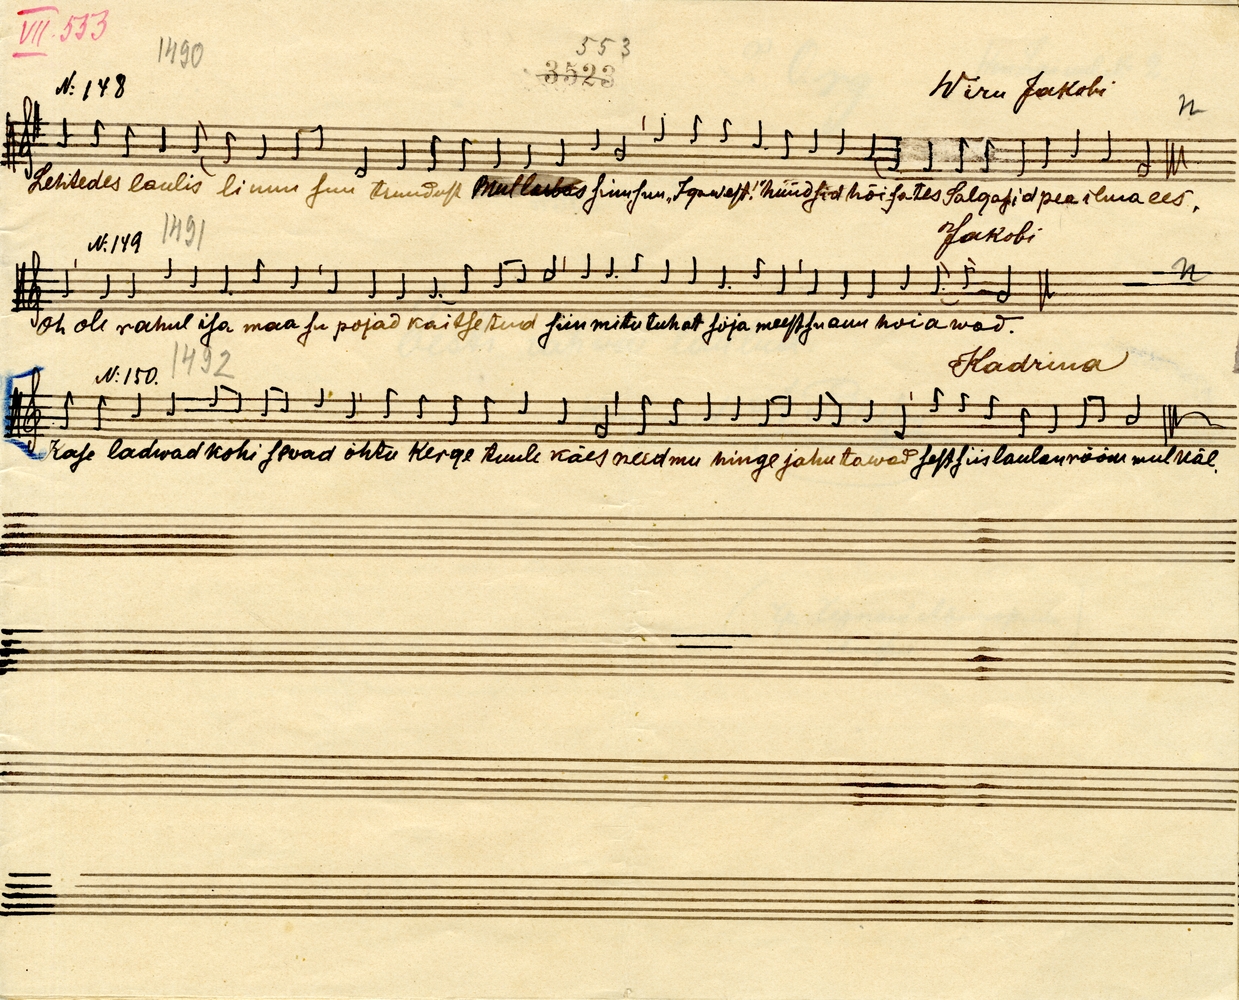 VII. 553
1490
553
3523
N: 148
Wiru Jakobi
n
Lehtedes laulis linnu suu truudust Mul lubas sinu suu „Igawest!" hüüdsid hõisates Salgasid pea ilma ees.
N: 149
1491
Jakobi
n
Oh ole rahul isa maa su pojad kaitsetud siin mitu tuhat sõja meest su auu hoiawad.
N: 150.
1492
Kadrina
Kase ladwad kohisewad õhtu kerge tuule käes need mu hinge jahutawad sest siis laulan rõõm mul käe.